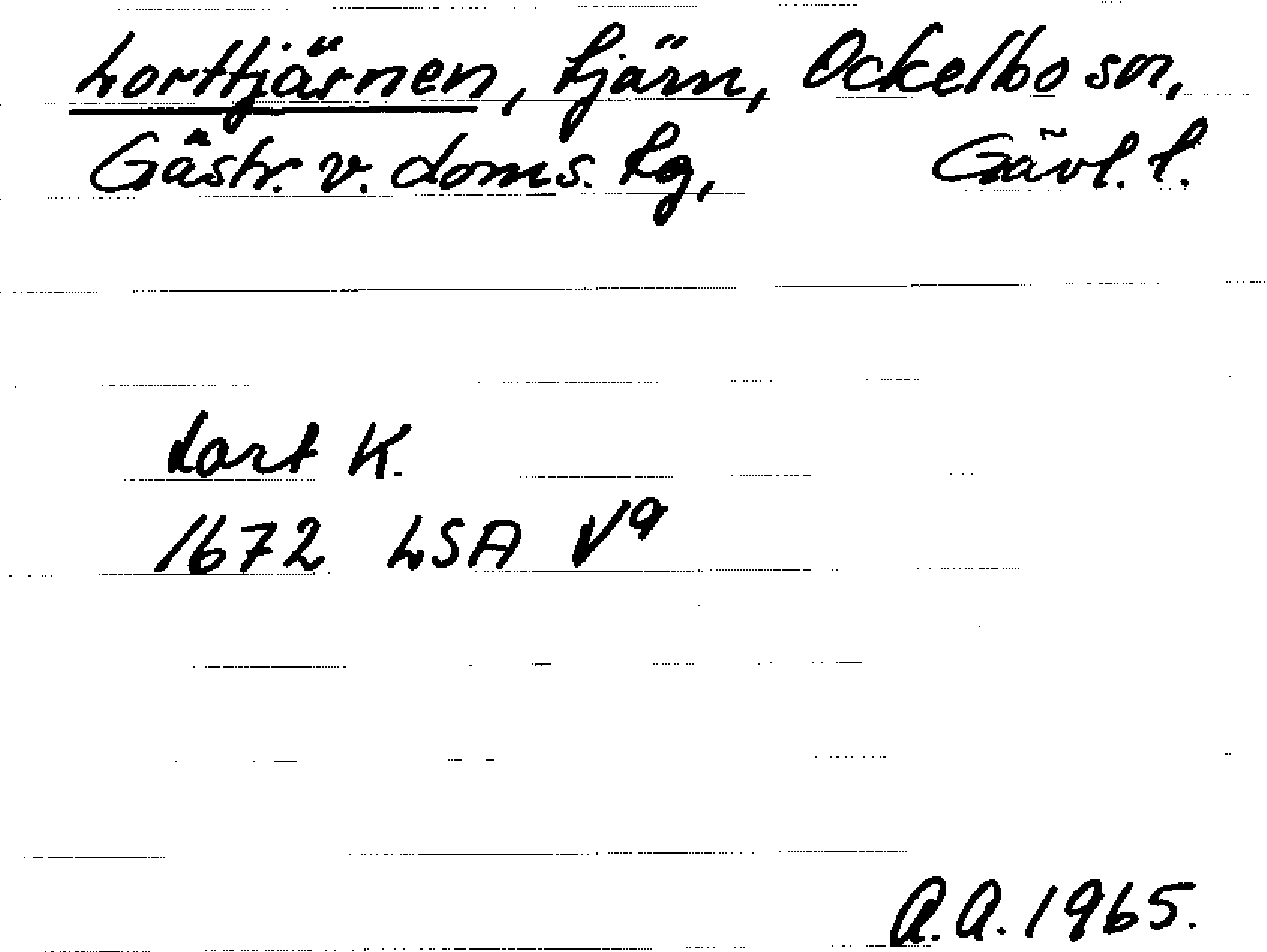 Lorttjärnen, tjärn, Ockelbo sn,
Gästr. v. doms. tg, Gävl. l.
Lort K.
1672 LSA V9
A.A. 1965.